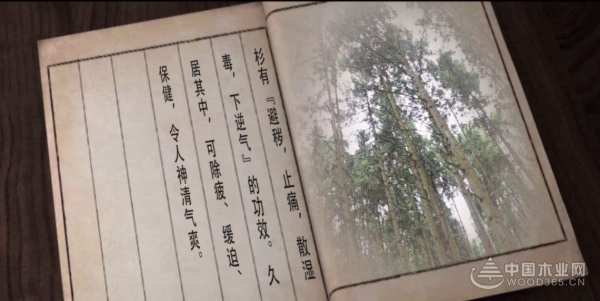 杉有『避秽，止痛，散湿
毒，下逆气』的功效。久
居其中，可除疲、缓迫、
保健，令人神清气爽。
中国木业网
WOOD365.CN